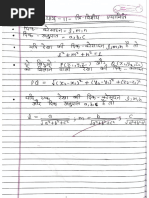 अध्याय - 11 - त्रि विमीय ज्यामिति
दिक् कोसाइन = l, m, n
दिक् अनुपात = a, b, c
यदि एक रेखा की दिक्-कोसाइन l, m, n है तो
l² + m² + n² = 1
दो बिंदुओं P(x₁, y₁, z₁) और Q(x₂, y₂, z₂)
को मिलाने वाली रेखा की दिक्-
PQ = √(x₂-x₁)² + (y₂-y₁)² + (z₂-z₁)²
यदि एक रेखा की दिक् कोसाइन l, m, n
और दिक् अनुपात a, b, c है तो
l = a / √a²+b²+c² , m = b / √a²+b²+c² , n = c / √a²+b²+c²